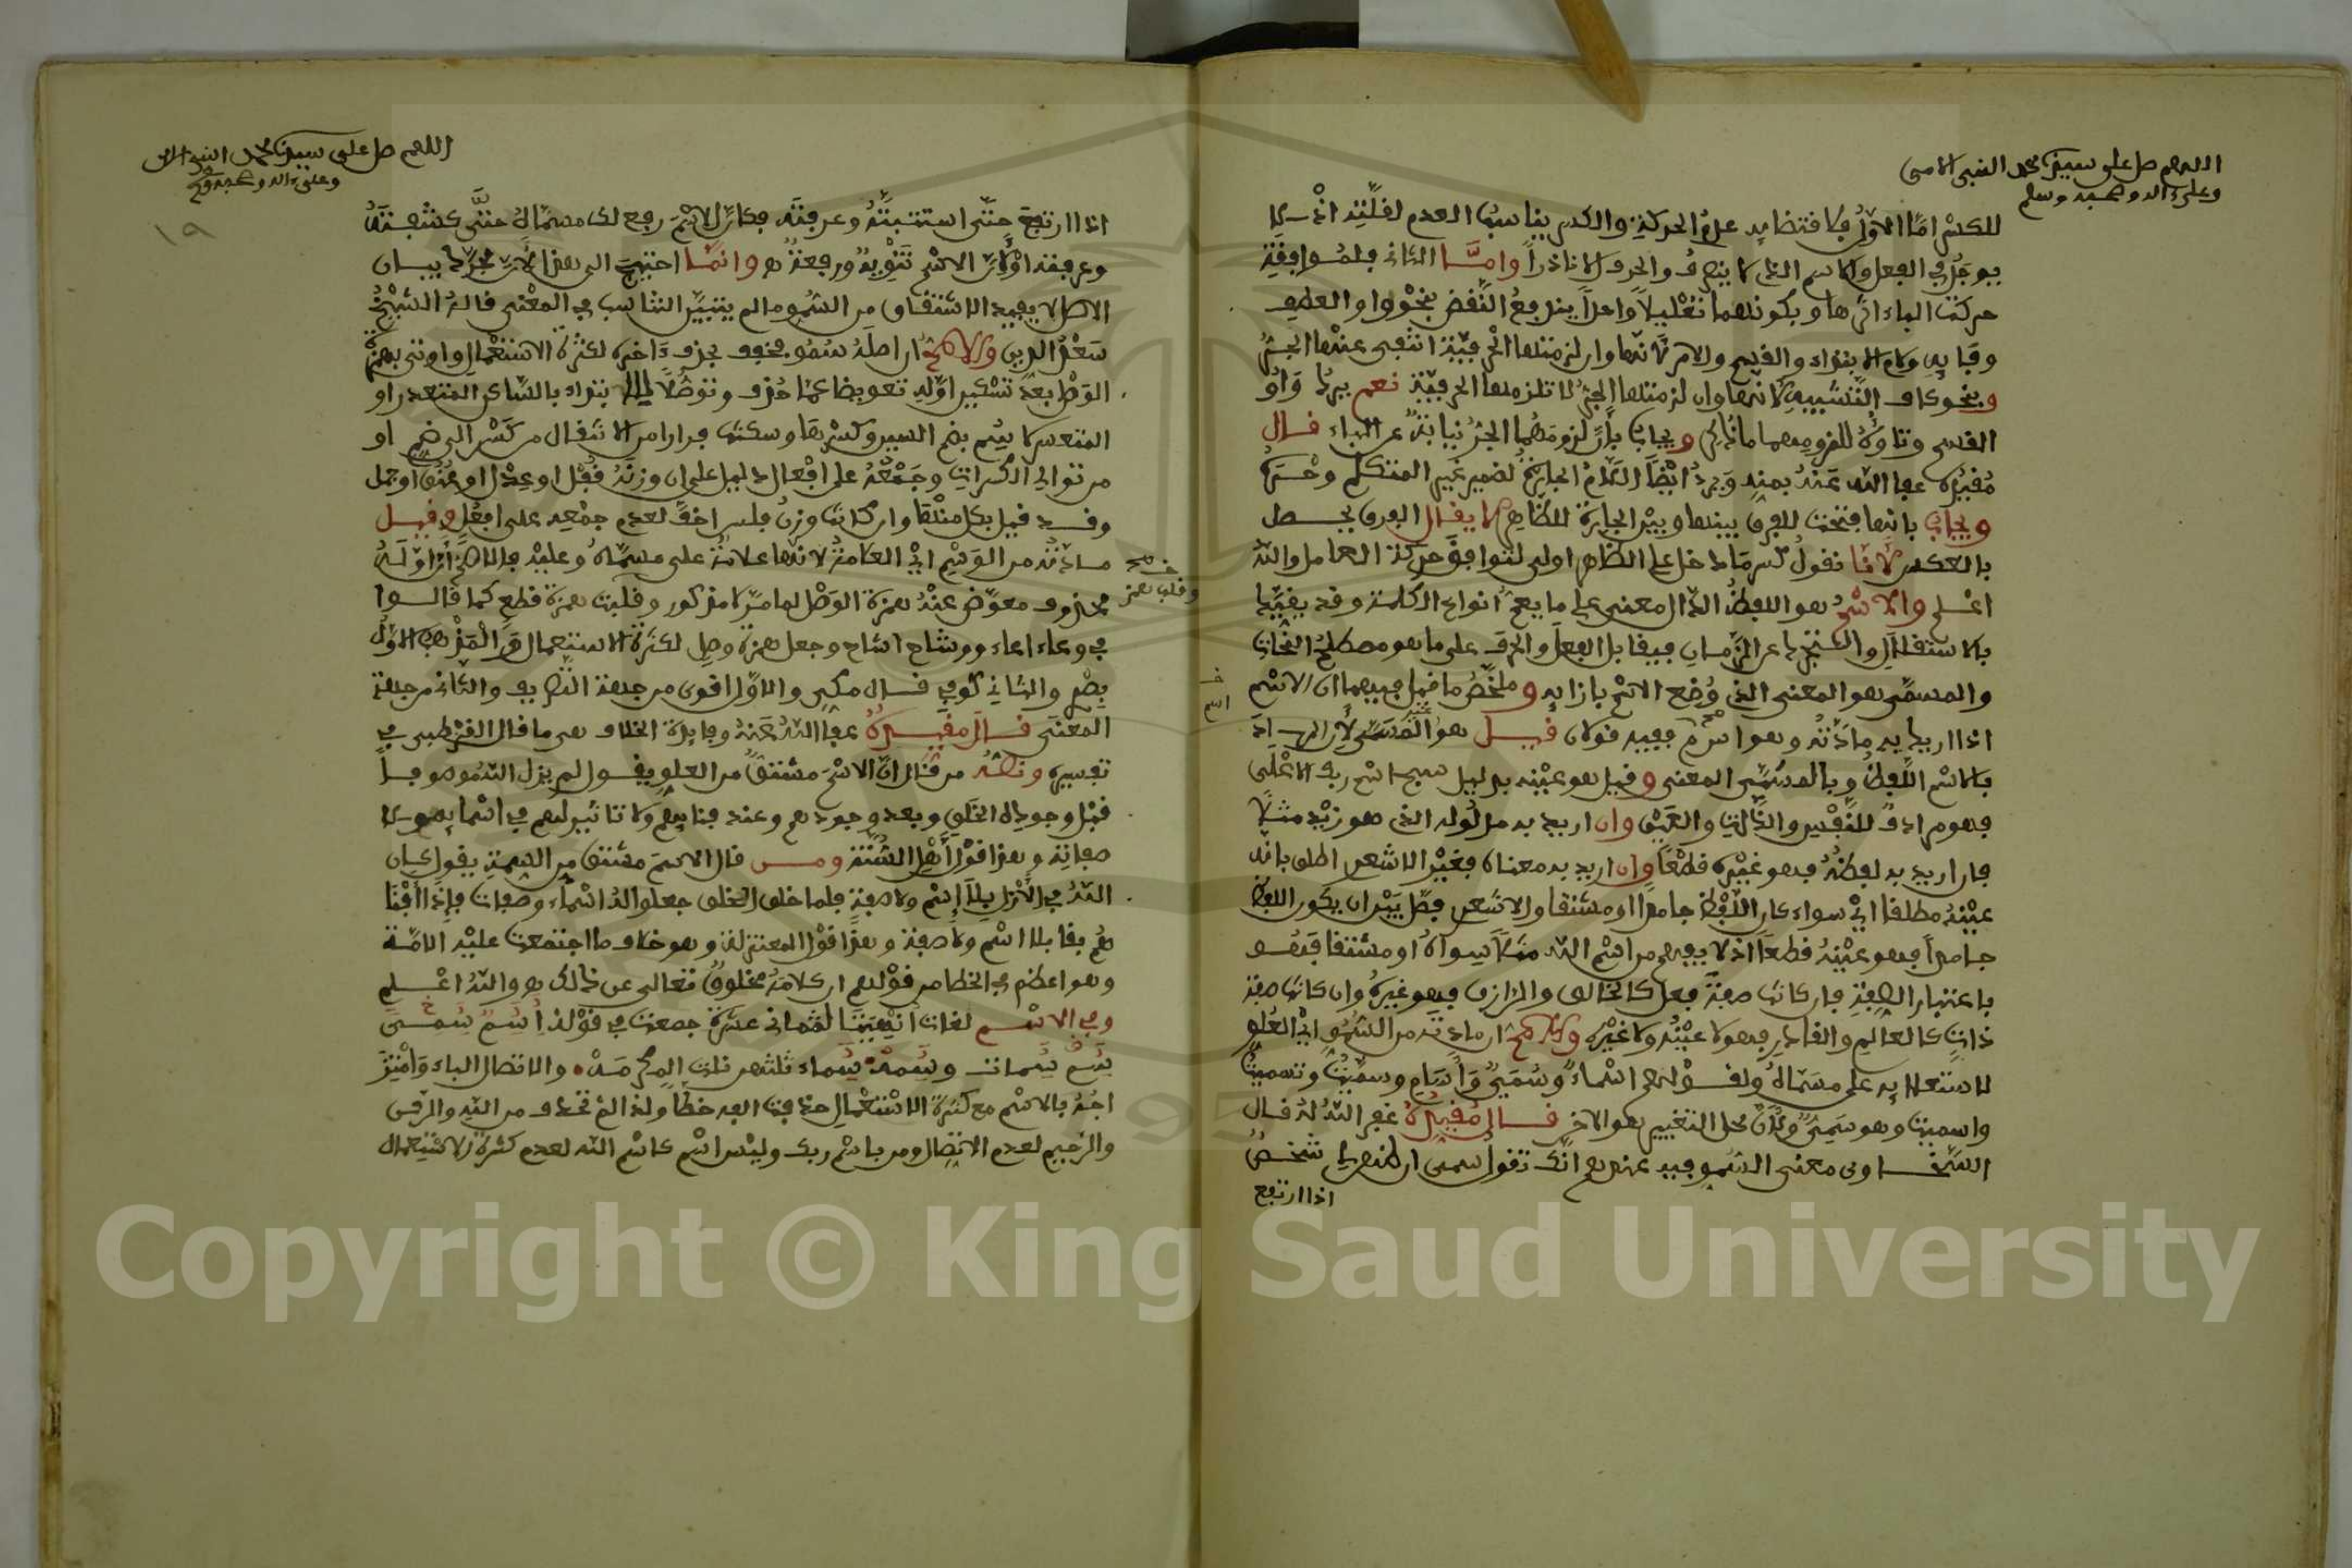 اللهم صل على سيدنا محمد النبي الامي
وعلى ءاله وصحبه وسلم
للكسر امّا الاوّل فلاقتضايه عدم الحركة والكسر يناسب العدم لقلّته اذ لا
يوجد في الفعل والاسم الذي لا ينصرف والحرف الا نادراً وامّا الثاني فلموافقة
حركت الباء اثرها وبكونهما تقليلاً واحداً يندفع النقض بنحو واو العطف
وفايه ولام الابتداء والقسم والامر لانها وان لزمتها الحرفيّة انتفى عنها الجرّ
وبنحو كاف التشبيه لانها وان لزمتها الجر لا تلزمها الحرفيّة نعم يرد واو
القسم وتاؤه للزومهما ما ذكر ويجاب بأن لزومهما الجرّ نيابة عن الباء قال
مُقيّده عفا الله عنه بمنه ويرد ايضًا اللام الجارة لضمير غير المتكلم وحده
ويجاب بانها فتحت للفرق بينها وبين الجارة للظاهر لا يقال الفرق يحصل
بالعكس لانا نقول كسر ما دخل على الظاهر اولى لتوافق حركة العامل والله
اعلم والاسم هو اللفظ الدال معنى على ما يعم انواع الكلمة وقد يقيّد
بالاستقلال والتجرد عن الزمان فيقابل الفعل والحرف على ما هو مصطلح النحاة
والمسمّى هو المعنى الذي وُضع الاسم بازايه وملخّص ما قيل فيهما ان الاسم
اذا اريد به مادّته وهو اسم ففيه قولان قيل هو المسمّى لأن المراد
بالاسم اللفظ وبالمسمّى المعنى وقيل هو عينه بدليل سبح اسم ربك الاعلى
فهو مرادف للنفس والذات والعين وان اريد به مدلوله الذي هو زيد مثلا
فان اريد به لفظه فهو غيره قطعًا وان اريد به معناه فغير الاشعري اطلق بانه
عينه مطلقا اي سواء كان اللفظ جامدا او مشتقا والاشعري فصّل بين ان يكون اللفظ
جامداً فهو عينه قطعاً اذ لا يفهم من اسم الله مثلاً سواه او مشتقا فهو
باعتبار الصفة فان كانت صفة فعل كالخالق والرازق فهو غيره وان كانت صفة
ذات كالعالم والقادر فهو لا عينه ولا غيره وان مادته من السُّموِّ اي العُلو
لاستعلايه على مسمّاه ولقولهم اسماء وسُمَيّ وأَسَامٍ وسمّيت وتسميت
واسميت وهو سَمِيّ ولأن محل التغيير هو الاخر قال مُقيّده غفر الله له قال
السخاوي معنى السمو فيه عندهم انك تقول سمى لي شخص
اذا ارتفع
اللهم صل على سيدنا محمد النبي الامي
وعلى ءاله وصحبه وسلم
١٩
اذا ارتفع حتّى استثبتّه وعرفته فكان الاسم رفع لك مسمّاه حتّى كشفته
وعرفته او لأن الاسم تنويه ورفعة وانما احتيج الى هذا لأن مجرّد بيان
الاصل لا يفيد الاشتقاق من السّمو ما لم يتبيّن التناسب في المعنى قاله الشيخ
سعد الدين ان اصله سُمُو مخفف بحذف ءاخره لكثرة الاستعمال واوتي بهمزة
الوصل بعد تسكين اوّله تعويضا عمّا حُذف وتوصّلاً للابتداء بالساكن المتعذر او
المتعسر لا بضم السين وكسرها وسكنت فرارا من الانتقال من كسر الى ضم او
من توالي الكسرات وجَمْعُهُ على افعال دليل على ان وزنه قُفْل او عِدْل او عُنُق او جمل
وقد قيل بكل منها وان كانت وزن فلس اخفّ لعدم جمعه على افعُل وقيل
مادّته من الوسم اي العلامة لانها علامة على مسمّاه وعليه فالاصح أن اوّله
محذوف معوّض عنه همزة الوصل لما مرّ لا مذكور وقلبت همزة قطع كما قالوا
في وعاء اعاء ووشاح اشاح وجعل همزة وصل لكثرة الاستعمال والمذهب الاوّل
بصري والثاني كوفي قال مكي والاوّل اقوى من جهة التصريف والثاني من جهة
المعنى قال مقيّده عفا الله عنه وفايدة الخلاف هي ما قال القرطبي في
تفسيره ونصّه من قال انّ الاسم مشتق من العلو يقول لم يزل الله موصوفاً
قبل وجود الخلق وبعد وجودهم وعند فنايهم ولا تاثير لهم في اسمايه ولا
صفاته وهذا قول أهل السُّنّة ومن قال الاسم مشتق من السمة يقول كان
الله في الأزل بلا إسم ولا صفة فلما خلق الخلق جعلوا له اسماء وصفات فإذا أفنا
هم بقا بلا اسم ولا صفة وهذا قول المعتزلة وهو خلاف ما اجتمعت عليه الامّة
وهو اعظم في الخطا من قولهم ان كلامه مخلوق تعالى عن ذلك والله اعلم
وفي الاسم لغات أنهيت لثماني عشرة جمعت في قوله
اجُه بالاسم مع كثرة الاستعمال حذفت الفه خطاً ولذا لم تحذف من الله والرحمن
والرحيم لعدم الاتصال ومن باسم ربك وليس اسم كاسم الله لعدم كثرة الاستعمال